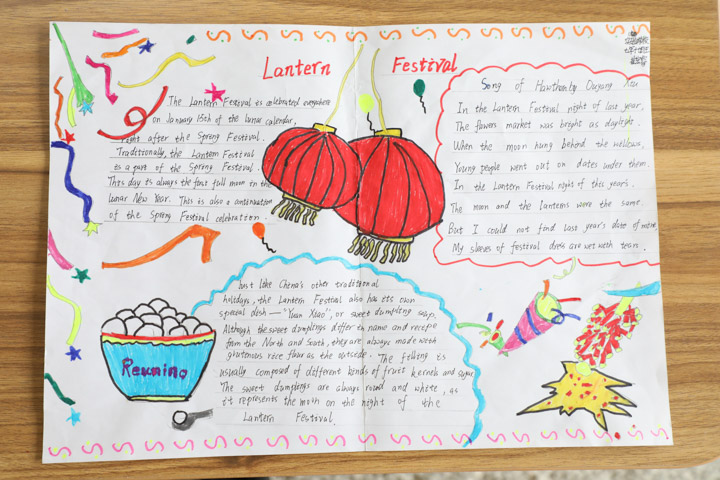 Lantern Festival
The Lantern Festival is celebrated everywhere
on January 15th of the lunar calendar,
right after the Spring Festival.
Traditionally, the Lantern Festival
is a part of the Spring Festival.
This day is always the first full moon in the
lunar New Year. This is also a continuation
of the Spring Festival celebration.
Song of Hawthornly Ouyang Xiu
In the Lantern Festival night of last year,
The flowers market was bright as daylight.
When the moon hung behind the willows,
Young people went out on dates under them.
In the Lantern Festival night of this year's.
The moon and the lanterns were the same.
But I could not find last year's date of mine,
My sleeves of festival dress are wet with tears.
Just like China's other traditional
holidays, the Lantern Festival also has its own
special dish — "Yuan Xiao", or sweet dumpling soup.
Although the sweet dumplings differ in name and recipe
from the North and South, they are always made with
glutenous rice flour as the outside. The filling is
usually composed of different kinds of fruit kernels and sugar.
The sweet dumplings are always round and white, as
it represents the moon on the night of the
Lantern Festival.
Reunino